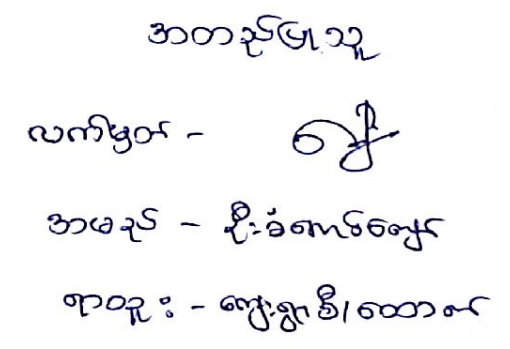 အတည်ပြုသူ
လက်မှတ် -
အမည် - ဦးခံအောင်ကျော်
ရာထူး - ကျေးရွာစီ/ထောက်